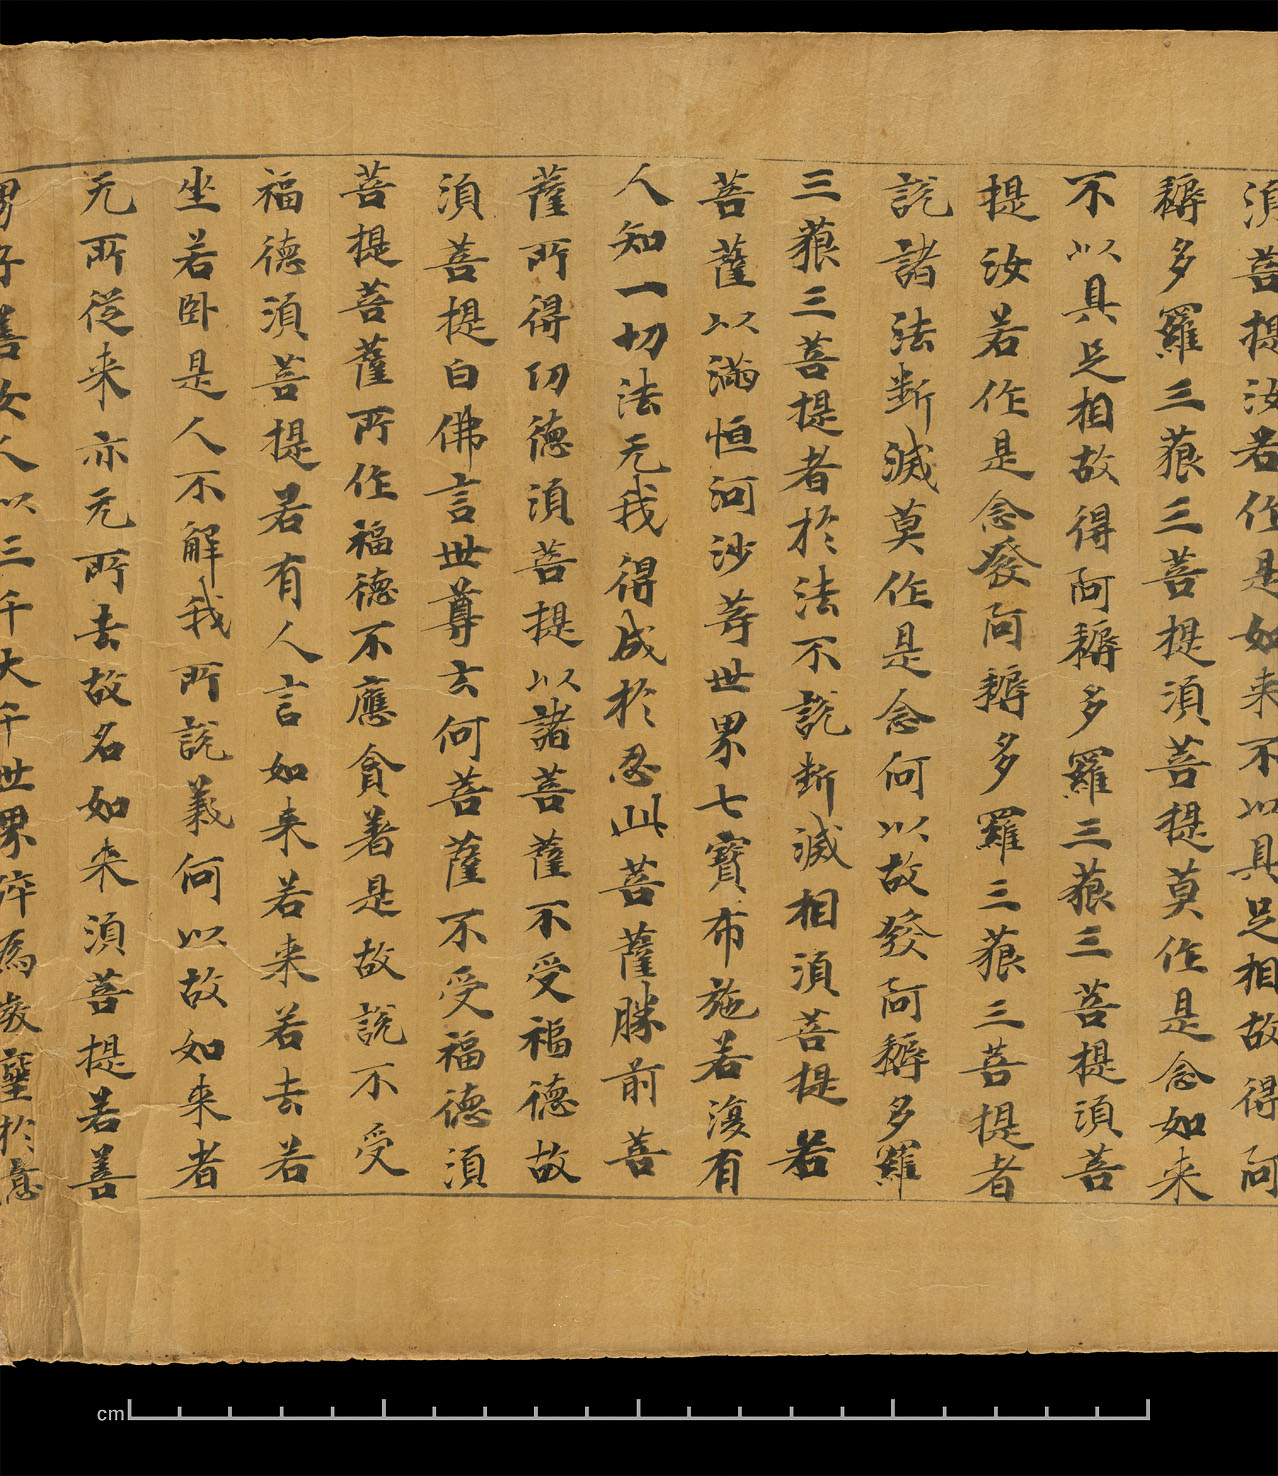 湏菩提汝若作是如来不以具足相故得阿
耨多羅三藐三菩提湏菩提莫作是念如来
不以具足相故得阿耨多羅三藐三菩提湏菩
提汝若作是念發阿耨多羅三藐三菩提者
說諸法断滅莫作是念何以故發阿耨多羅
三藐三菩提者於法不說断滅相湏菩提若
菩薩以滿恒河沙等世界七寳布施若復有
人知一切法无我得成於忍此菩薩勝前菩
薩所得功德湏菩提以諸菩薩不受福德故
湏菩提白佛言世尊云何菩薩不受福德湏
菩提菩薩所作福德不應貪著是故說不受
福德湏菩提若有人言如来若来若去若
坐若卧是人不解我所說義何以故如来者
无所從来亦无所去故名如来湏菩提若善
男子善女人以三千大千世界碎為㣲塵於意
cm